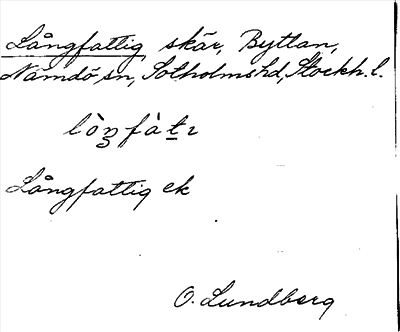 Långfattig, skär, Byttan,
Nämdö sn, Sotholms hd, Stockh. l.
lòŋfàtɩ
Långfattig ek
O. Lundberg